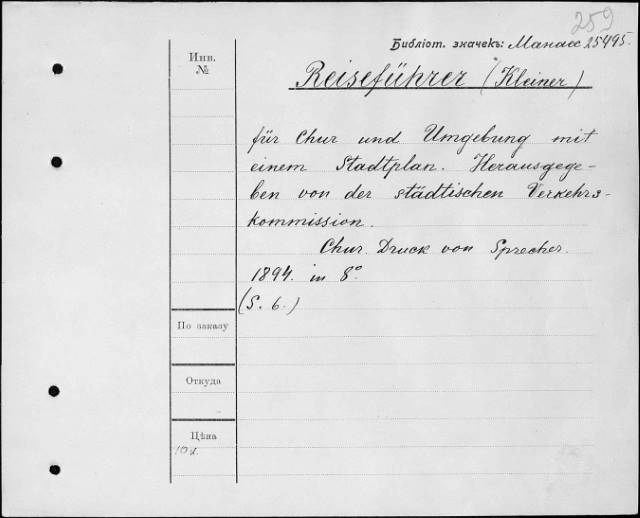 259
Библіот. значекъ: Манасс 25495.
Инв.
№
Reiseführer (Kleiner)
für Chur und Umgebung mit
einem Stadtplan. Herausgege-
ben von der städtischen Verkehrs-
kommission.
Chur. Druck von Sprecher.
1894. in 8°
(S. 6.)
По заказу
Откуда
Цѣна